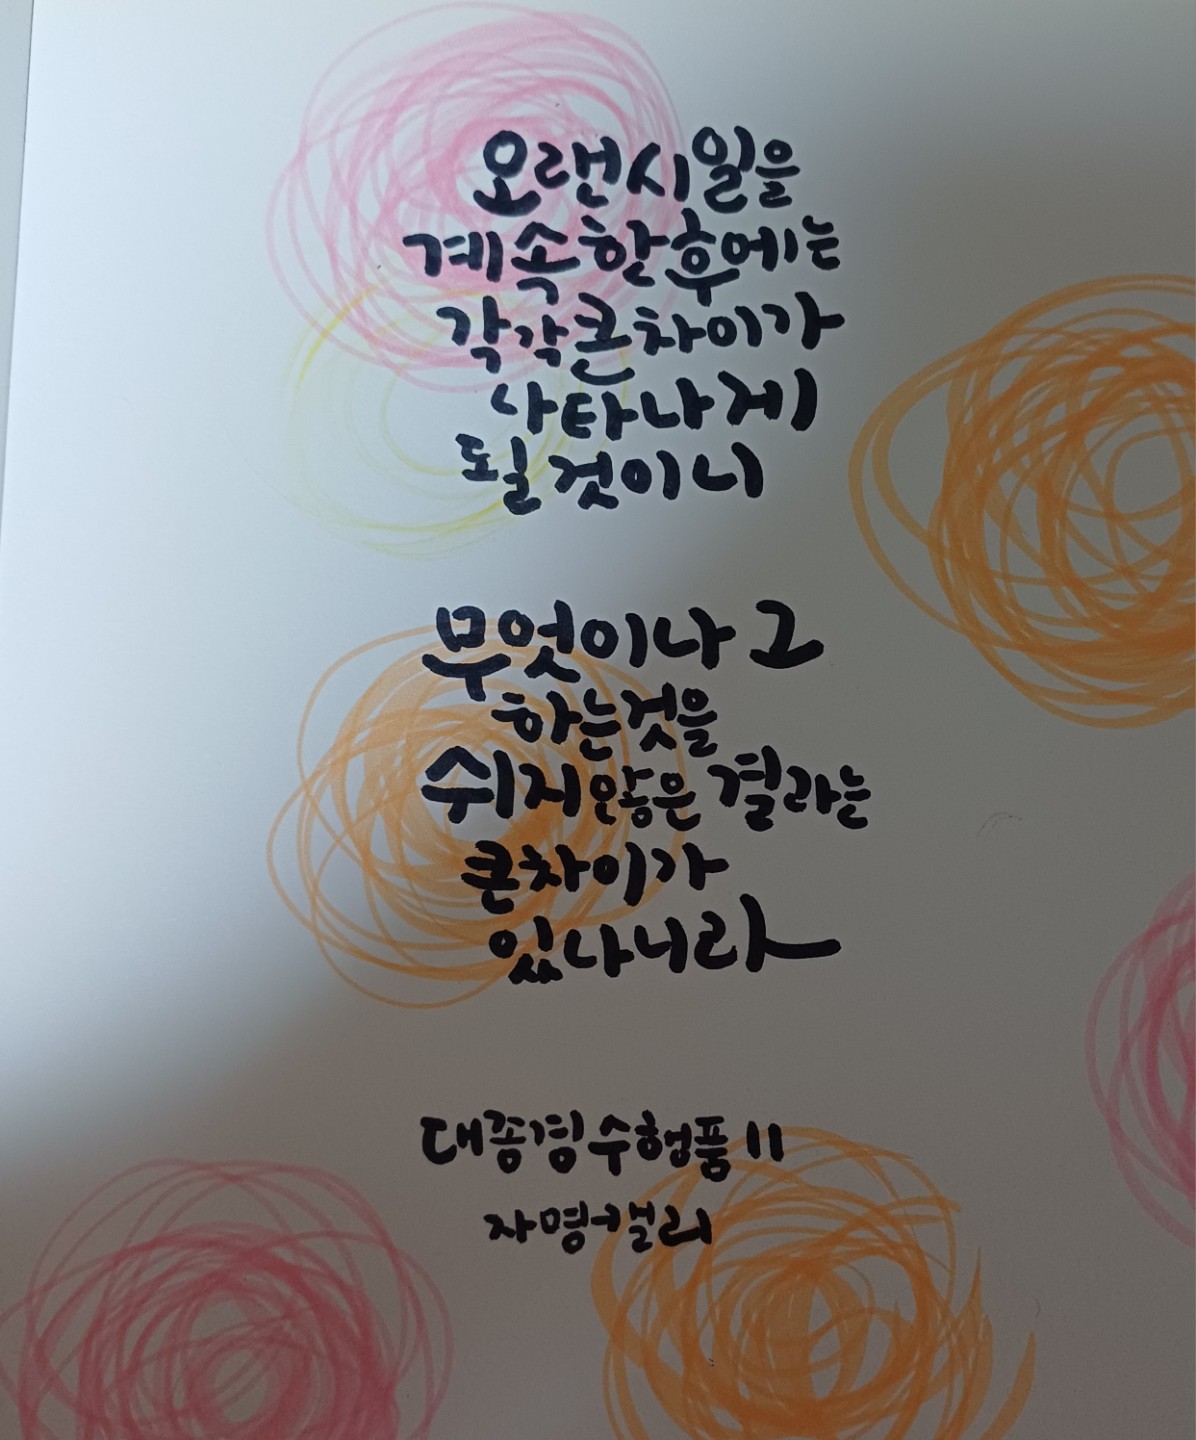 오랜시일을
계속한후에는
각각큰차이가
나타나게
될것이니
무엇이나 그
하는것을
쉬지않은 결과는
큰차이가
있나니라
대종경 수행품 11
자명캘리